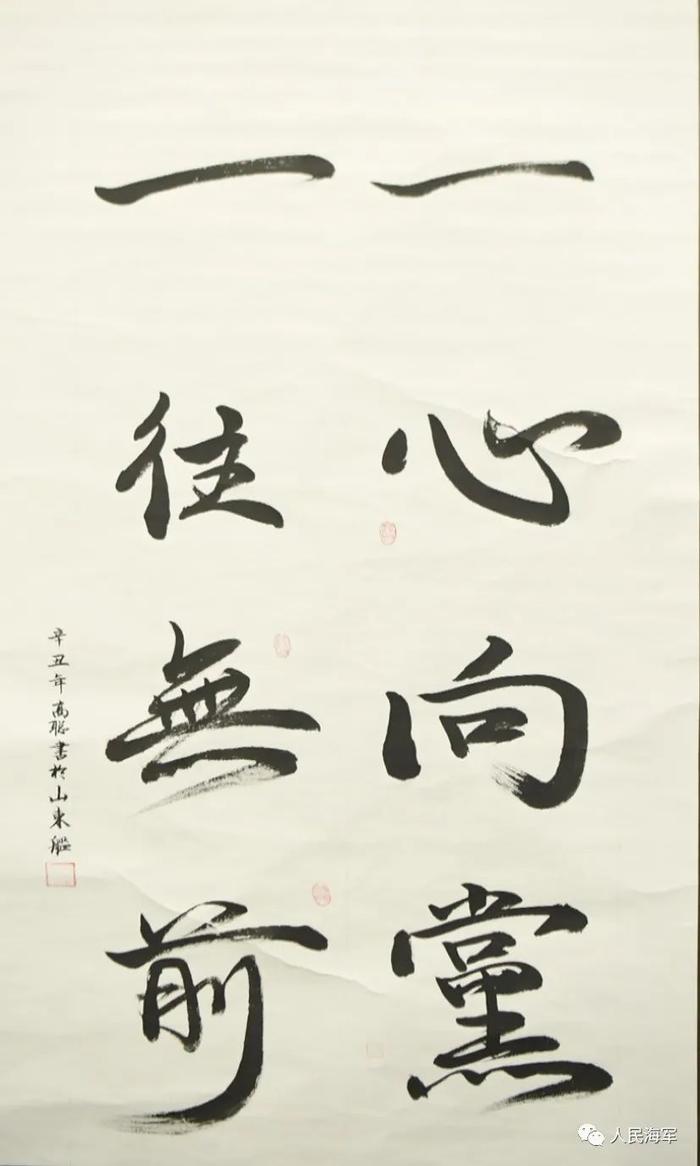 一心向黨
一往無前
辛丑年高聪書於山東艦
人民海军